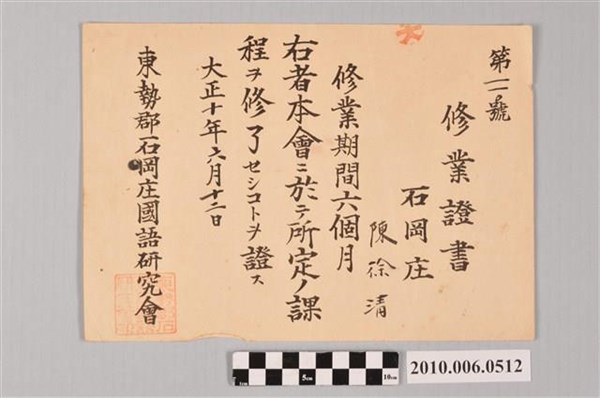 第一一號
修業證書
石岡庄
陳徐清
修業期間六個月
右者本會ニ於テ所定ノ課
程ヲ修了セシコトヲ證ス
大正十年六月十二日
東勢郡石岡庄國語研究會
5cm
10cm
2010.006.0512